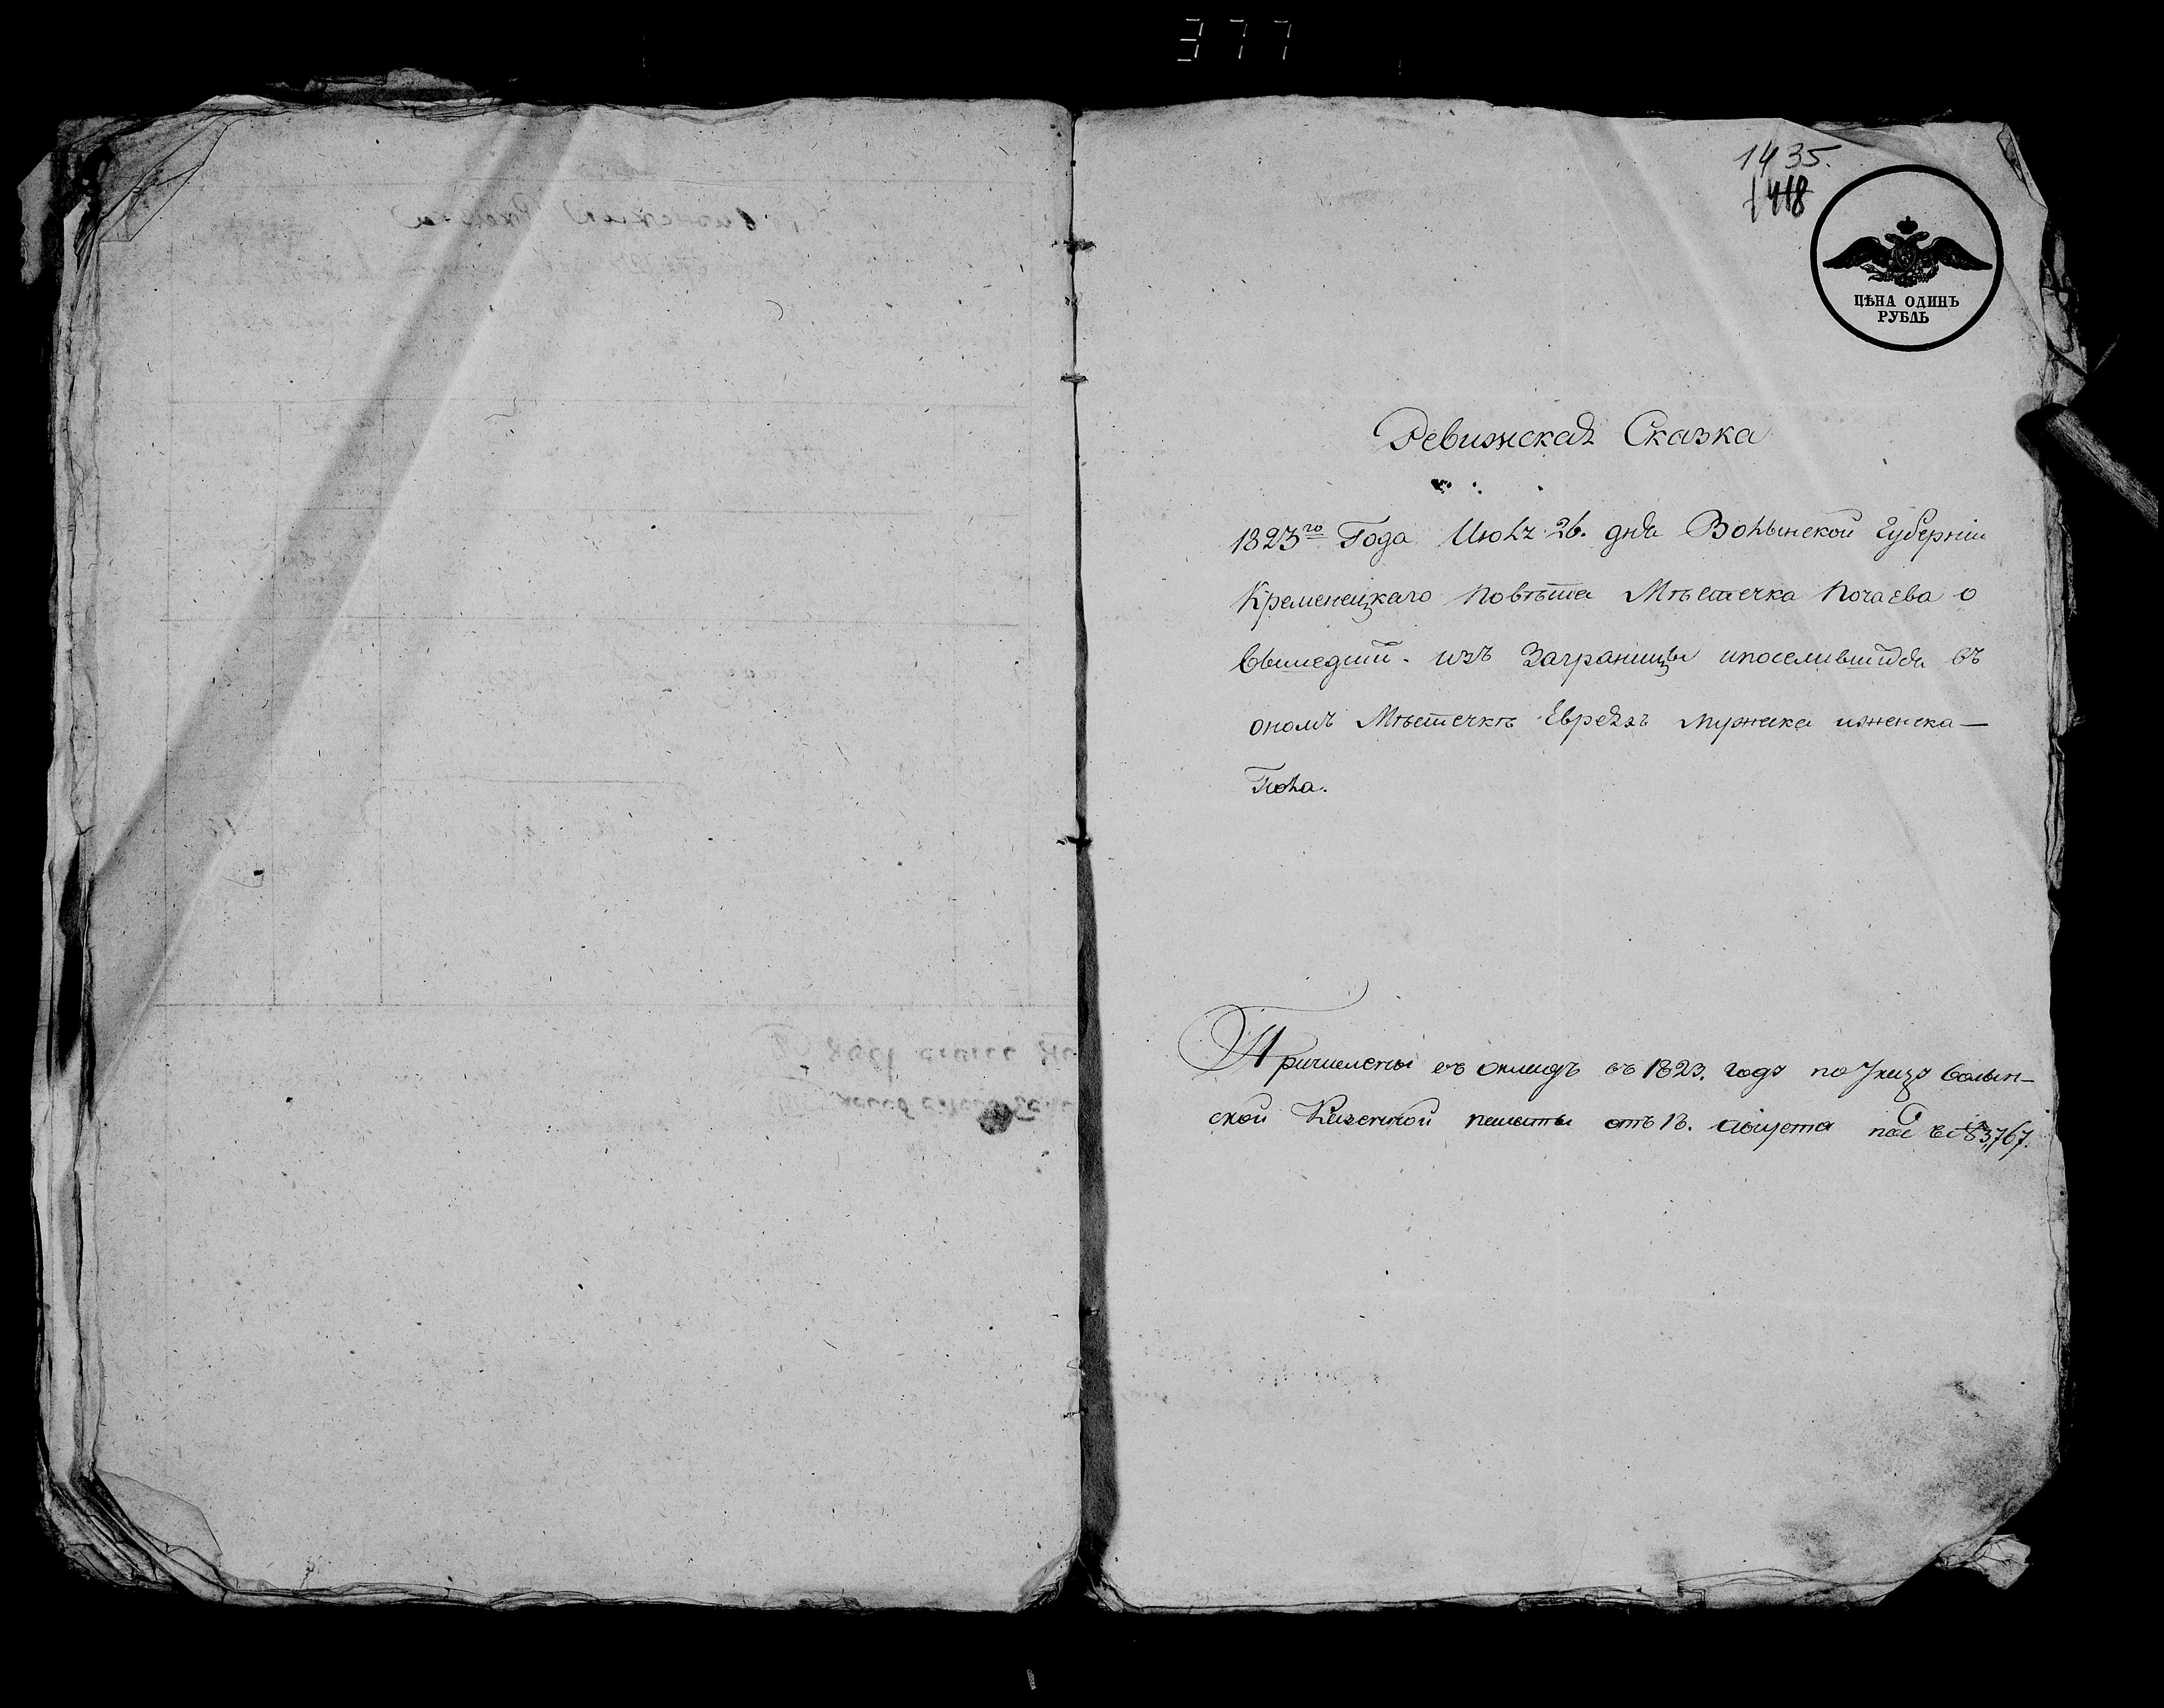 377
1435.
1418
ЦѢНА ОДИНЪ
РУБЛЬ
Ревижская Сказка
1823го Года Июля 26. дня Волынской Губерніи
Кременецкаго Повѣта Мѣстечка Почаева о
вышедший. изъ Заграницы ипоселившихся въ
ономъ Мѣстечкѣ Евреяхъ мужска иженска—
Пола.
Причислены въ окладъ въ 1823. году по Указу Волын-
ской Казенной палаты отъ 13. августа